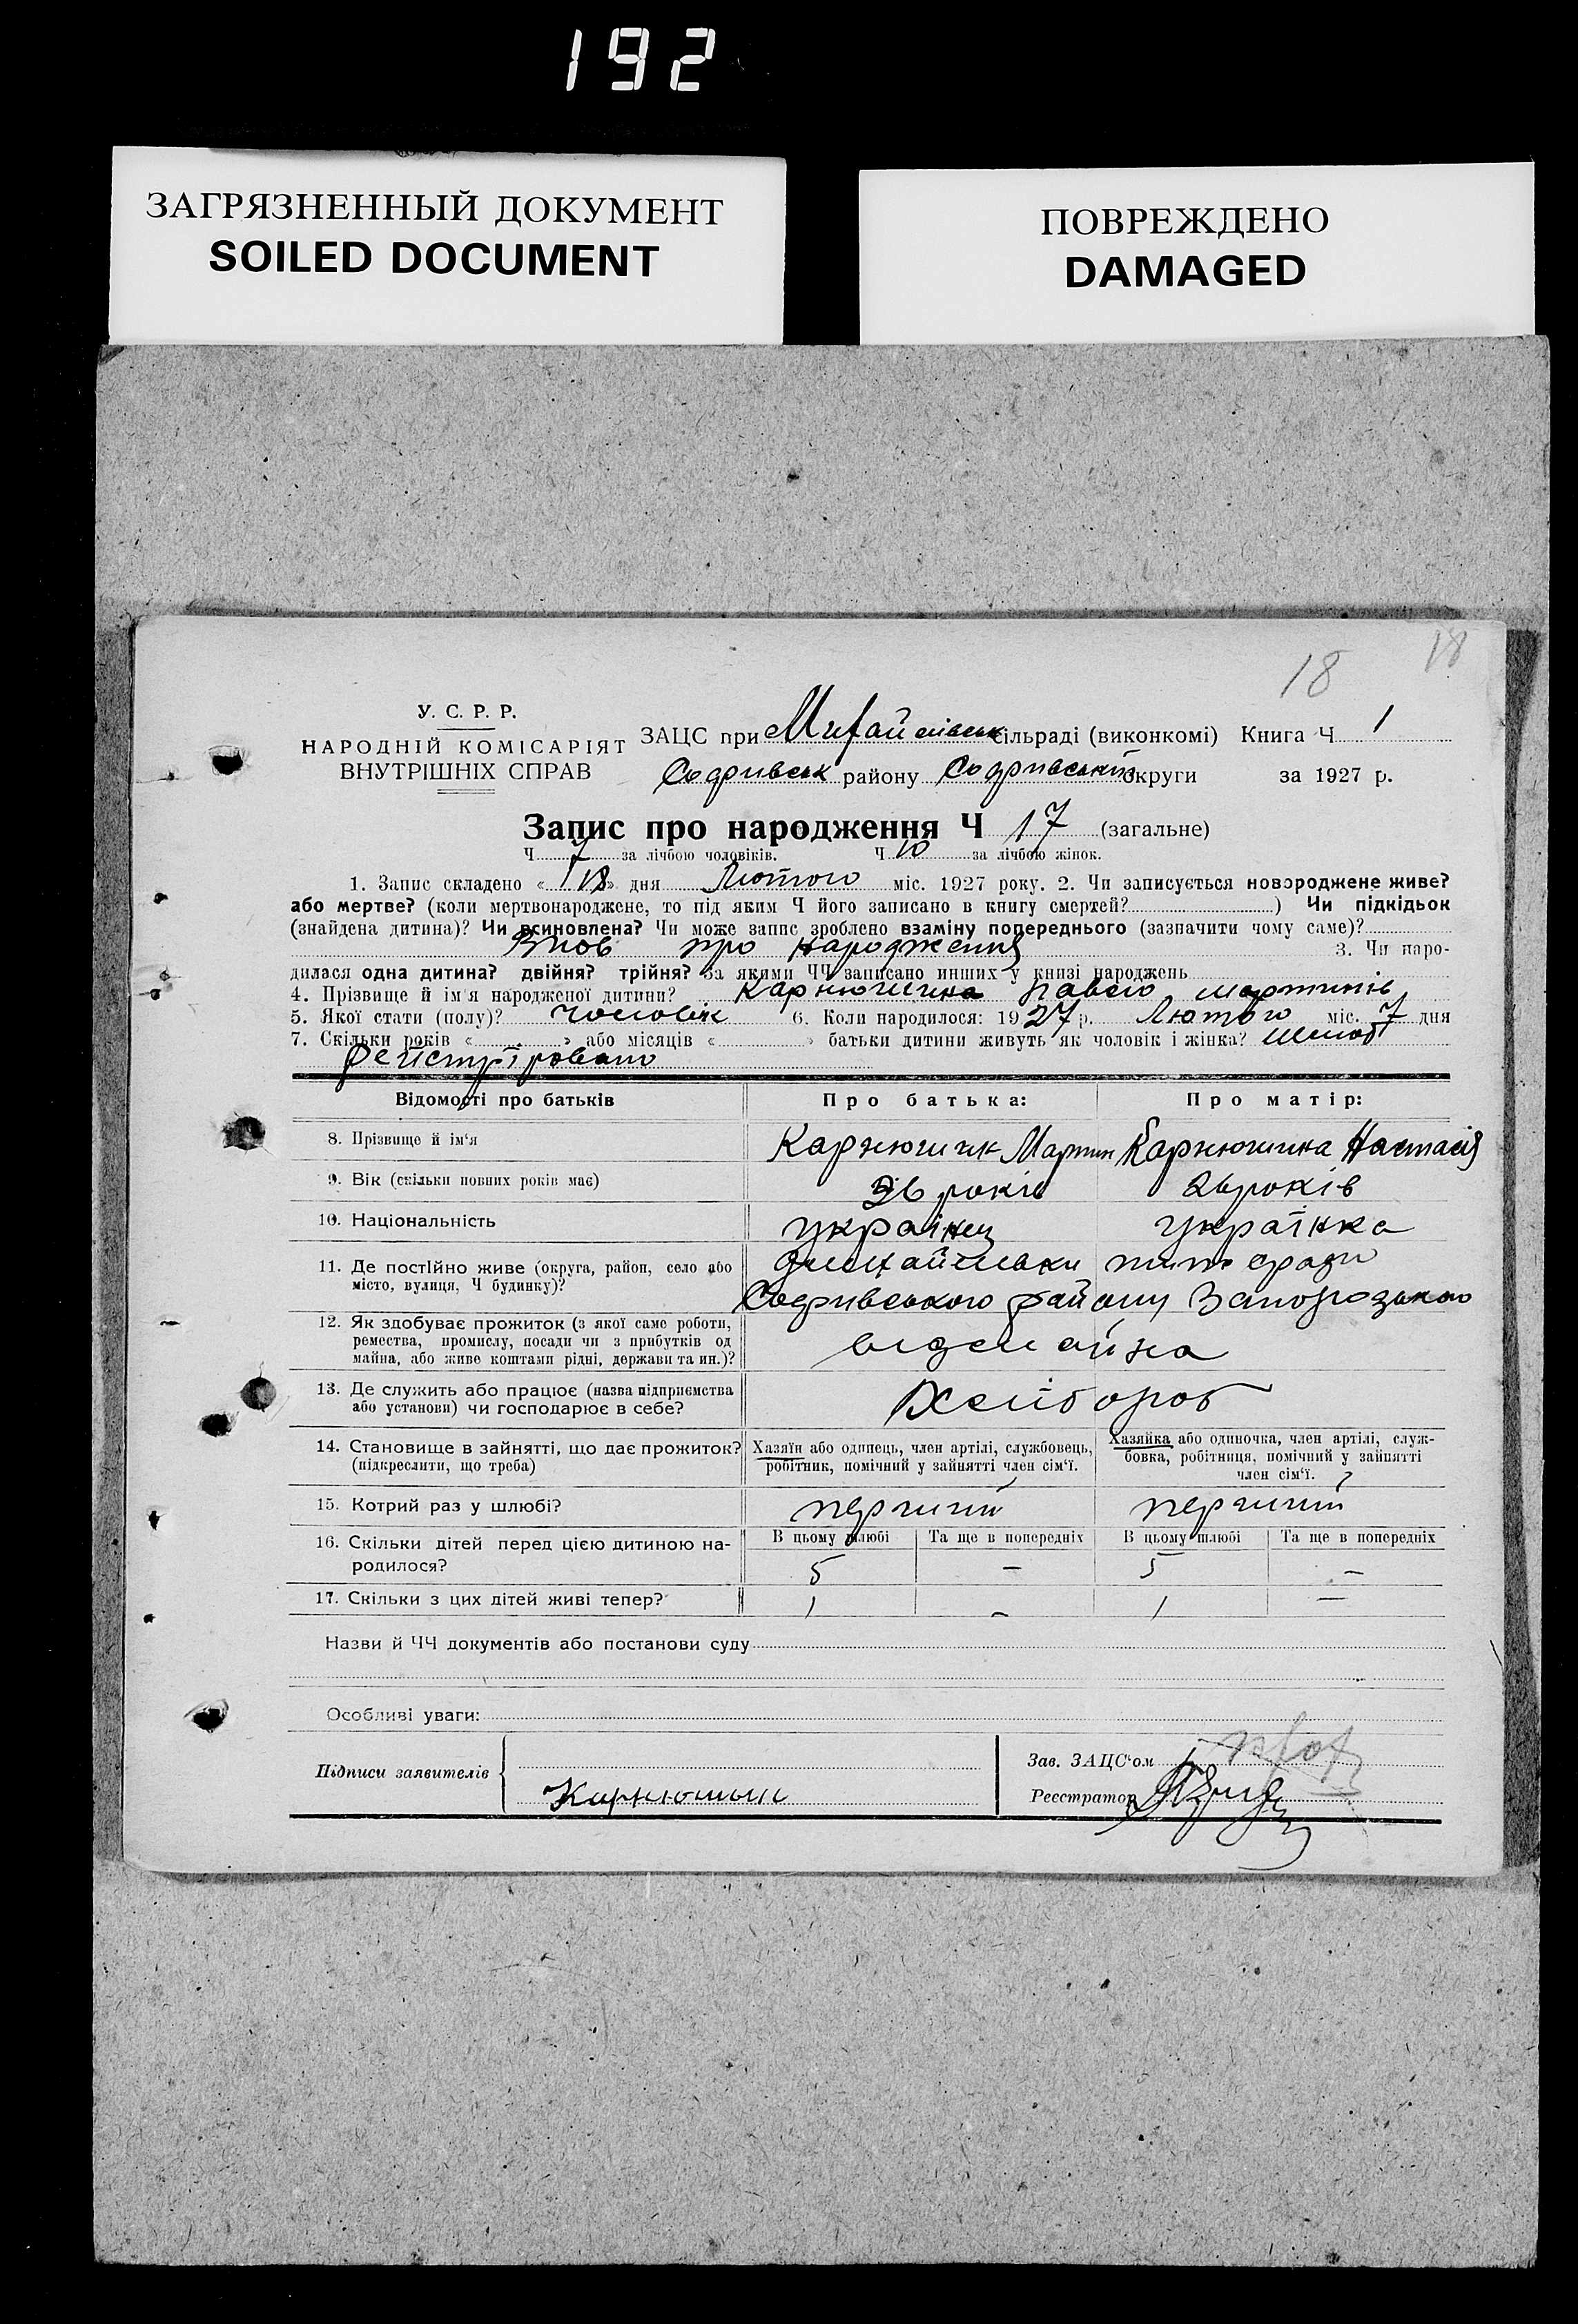 192
ЗАГРЯЗНЕННЫЙ ДОКУМЕНТ
SOILED DOCUMENT
ПОВРЕЖДЕНО
DAMAGED
18 18
У. С. Р. Р.
НАРОДНІЙ КОМІСАРІЯТ
ВНУТРІШНІХ СПРАВ
ЗАЦС при Михайлівськ сільраді (виконкомі) Книга Ч 1
району округи за 1927 р.
Запис про народження Ч 17 (загальне)
Ч 7 за лічбою чоловіків. Ч 10 за лічбою жінок.
1. Запис складено « 18 » дня Лютого міс. 1927 року. 2. Чи записується новороджене живе?
або мертве? (коли мертвонароджене, то під яким Ч його записано в книгу смертей? ) Чи підкідьок
(знайдена дитина)? Чи всиновлена? Чи може запис зроблено взаміну попереднього (зазначити чому саме)?
про народження 3. Чи наро-
дилася одна дитина? двійня? трійня? За якими ЧЧ записано инших у книзі народжень
4. Прізвище й ім'я народженої дитини? Карнюшина Павло мартинів
5. Якої стати (полу)? чоловік 6. Коли народилося: 1927 р. Лютого міс. 7 дня
7. Скільки років « » або місяців « » батьки дитини живуть як чоловік і жінка? шлюб
Реистріровано
Відомості про батьків
Про батька:
Про матір:
8. Прізвище й ім'я
Карнюшик Мартин Карнюшина Настасія
9. Вік (скільки повних років має)
26 років 26 років
10. Національність
українец українка
11. Де постійно живе (округа, район, село або
місто, вулиця, Ч будинку)?
району
12. Як здобуває прожиток (з якої саме роботи,
ремества, промислу, посади чи з прибутків од
майна, або живе коштами рідні, держави та ин.)?
13. Де служить або працює (назва підприємства
або установи) чи господарює в себе?
Хлібороб
14. Становище в зайнятті, що дає прожиток?
(підкреслити, що треба)
Хазяїн або одинець, член артілі, службовець,
робітник, помічний у зайнятті член сім'ї.
Хазяйка або одиночка, член артілі, служ-
бовка, робітниця, помічний у зайнятті
член сім'ї.
15. Котрий раз у шлюбі?
перший перший
16. Скільки дітей перед цією дитиною на-
родилося?
В цьому шлюбі Та ще в попередніх В цьому шлюбі Та ще в попередніх
5 – 5 –
17. Скільки з цих дітей живі тепер?
1 – 1 –
Назви й ЧЧ документів або постанови суду
Особливі уваги:
Підписи заявителів
Карнюшин
Зав. ЗАЦС'ом
Реєстратор